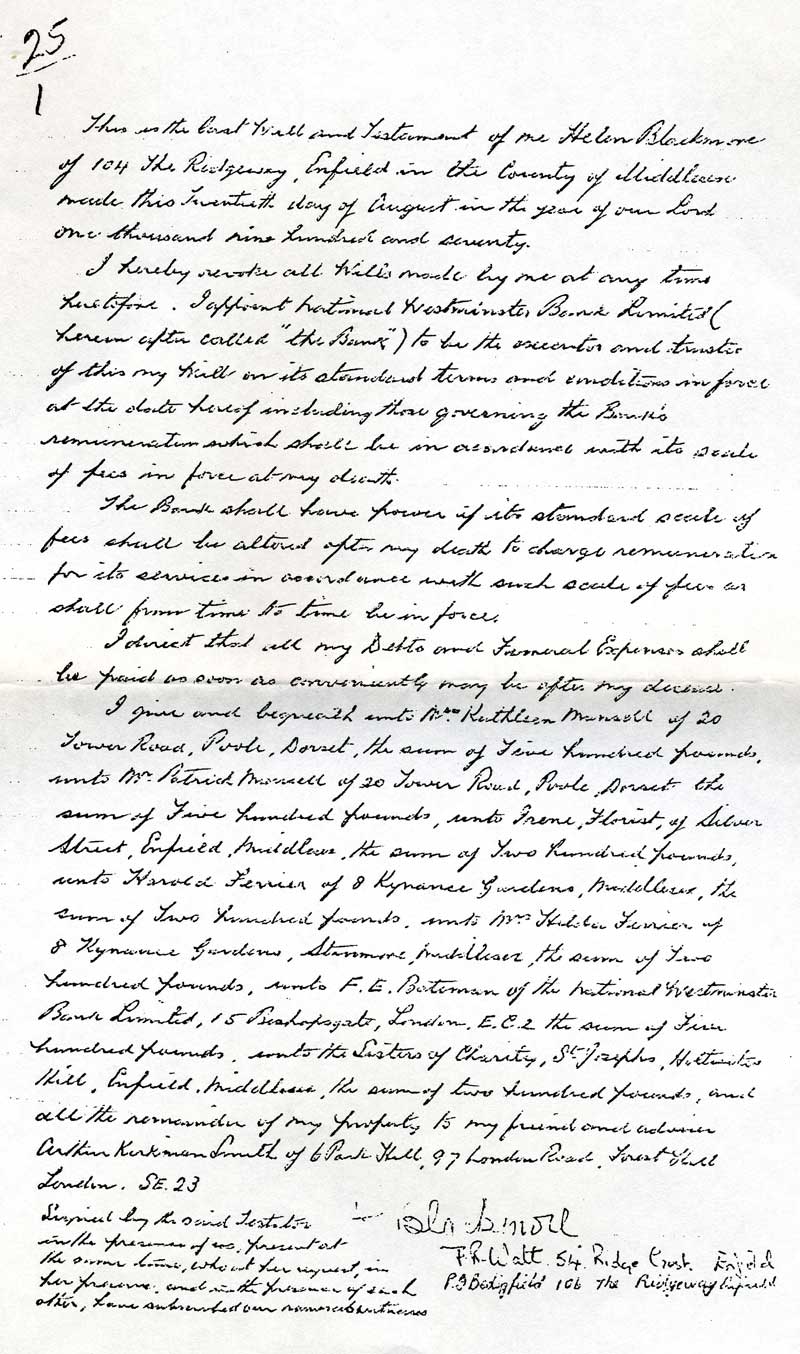 25
1
This is the last Will and Testament of me Helen Blackmore
of 104 The Ridgeway, Enfield in the County of Middlesex
made this Twentieth day of August in the year of our Lord
one thousand nine hundred and seventy.
I hereby revoke all Wills made by me at any time
heretofore. I appoint National Westminster Bank Limited (
herein after called "the Bank") to be the executor and trustee
of this my Will on its standard terms and conditions in force
at the date hereof including those governing the Bank's
remuneration which shall be in accordance with its scale
of fees in force at my death.
The Bank shall have power if its standard scale of
fees shall be altered after my death to charge remuneration
for its services in accordance with such scale of fees as
shall from time to time be in force.
I direct that all my Debts and Funeral Expenses shall
be paid as soon as conveniently may be after my decease.
I give and bequeath unto Mrs Kathleen Mansell of 20
Tower Road, Poole, Dorset, the sum of Five hundred pounds,
unto Mr. Patrick Mansell of 20 Tower Road, Poole, Dorset the
sum of Five hundred pounds, unto Irene, Florist, of Silver
Street, Enfield, Middlesex, the sum of Two hundred pounds,
unto Harold Ferrier of 8 Kynance Gardens, Middlesex, the
sum of Two hundred pounds, unto Mrs Hilda Ferrier of
8 Kynance Gardens, Stanmore, Middlesex, the sum of Two
hundred pounds, unto F. E. Bateman of the National Westminster
Bank Limited, 15 Bishopsgate, London. E.C.2 the sum of Five
hundred pounds, unto the Sisters of Charity, St Josephs,
Hill, Enfield, Middlesex, the sum of two hundred pounds, and
all the remainder of my property to my friend and adviser
Arthur Kirkman Smith of 6 Park Hill, 97 London Road, Forest Hill
London. SE.23
Signed by the said Testator
in the presence of us, present at
the same time, who at her request, in
her presence, and in the presence of each
other, have subscribed our names as witnesses
F.R. Watt 54 Ridge Crest. Enfield
106 The Ridgeway Enfield